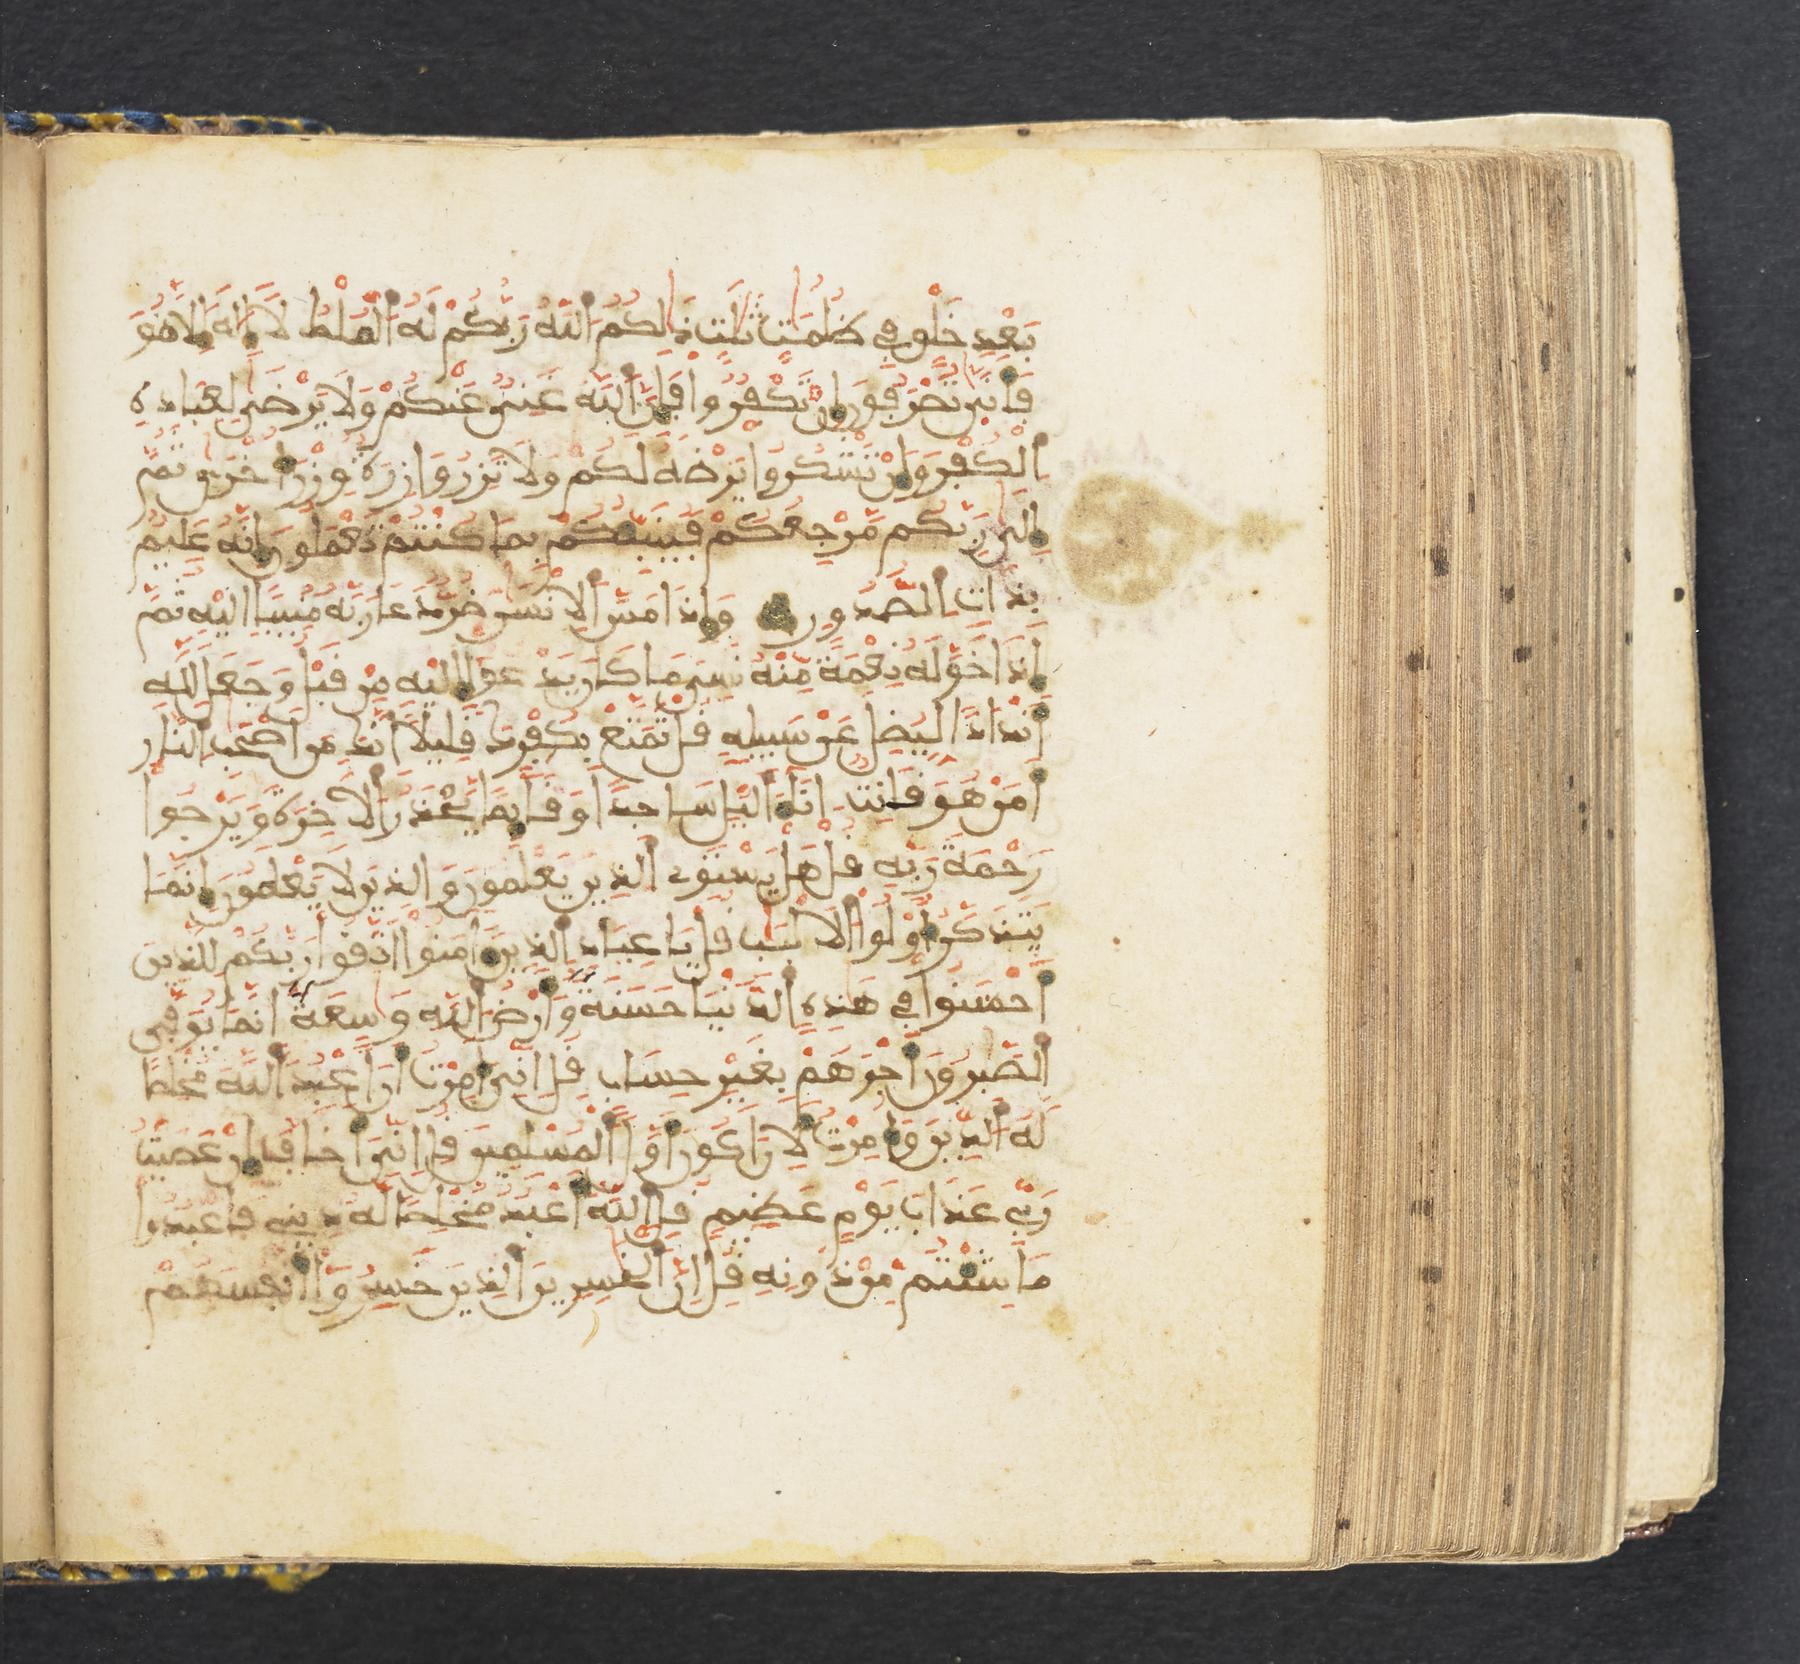 بَعْدِ خَلْوٍ فِي ظُلُمَٰتٍ ثَلَٰثٍ ذَٰلِكُمُ اللَّهُ رَبُّكُمْ لَهُ الْمُلْكُ لَا إِلَٰهَ إِلَّا هُوَ
فَأَنَّىٰ تُصْرَفُونَ إِن تَكْفُرُوا فَإِنَّ اللَّهَ غَنِيٌّ عَنكُمْ وَلَا يَرْضَىٰ لِعِبَادِهِ
الْكُفْرَ وَإِن تَشْكُرُوا يَرْضَهُ لَكُمْ وَلَا تَزِرُ وَازِرَةٌ وِزْرَ أُخْرَىٰ ثُمَّ
إِلَىٰ رَبِّكُم مَّرْجِعُكُمْ فَيُنَبِّئُكُم بِمَا كُنتُمْ تَعْمَلُونَ إِنَّهُ عَلِيمٌ
بِذَاتِ الصُّدُورِ وَإِذَا مَسَّ الْإِنسَٰنَ ضُرٌّ دَعَا رَبَّهُ مُنِيبًا إِلَيْهِ ثُمَّ
إِذَا خَوَّلَهُ نِعْمَةً مِّنْهُ نَسِيَ مَا كَانَ يَدْعُوا إِلَيْهِ مِن قَبْلُ وَجَعَلَ لِلَّهِ
أَندَادًا لِّيُضِلَّ عَن سَبِيلِهِ قُلْ تَمَتَّعْ بِكُفْرِكَ قَلِيلًا إِنَّكَ مِنْ أَصْحَٰبِ النَّارِ
أَمَنْ هُوَ قَانِتٌ آنَاءَ الَّيْلِ سَاجِدًا وَقَائِمًا يَحْذَرُ الْآخِرَةَ وَيَرْجُوا
رَحْمَةَ رَبِّهِ قُلْ هَلْ يَسْتَوِي الَّذِينَ يَعْلَمُونَ وَالَّذِينَ لَا يَعْلَمُونَ إِنَّمَا
يَتَذَكَّرُ أُولُوا الْأَلْبَٰبِ قُلْ يَا عِبَادِ الَّذِينَ آمَنُوا اتَّقُوا رَبَّكُمْ لِلَّذِينَ
أَحْسَنُوا فِي هَٰذِهِ الدُّنْيَا حَسَنَةٌ وَأَرْضُ اللَّهِ وَٰسِعَةٌ إِنَّمَا يُوَفَّى
الصَّٰبِرُونَ أَجْرَهُم بِغَيْرِ حِسَابٍ قُلْ إِنِّيَ أُمِرْتُ أَنْ أَعْبُدَ اللَّهَ مُخْلِصًا
لَّهُ الدِّينَ وَأُمِرْتُ لِأَنْ أَكُونَ أَوَّلَ الْمُسْلِمِينَ قُلْ إِنِّيَ أَخَافُ إِنْ عَصَيْتُ
رَبِّي عَذَابَ يَوْمٍ عَظِيمٍ قُلِ اللَّهَ أَعْبُدُ مُخْلِصًا لَّهُ دِينِي فَاعْبُدُوا
مَا شِئْتُم مِّن دُونِهِ قُلْ إِنَّ الْخَٰسِرِينَ الَّذِينَ خَسِرُوا أَنفُسَهُمْ